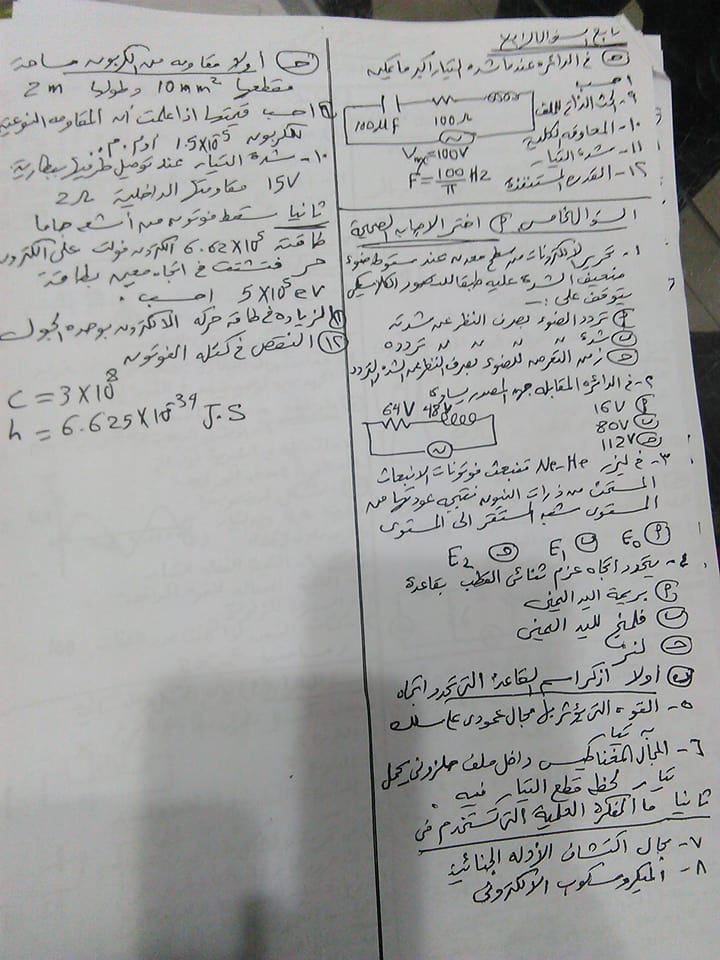 تابع السؤال الرابع
ح) في الدائرة عندما شدة التيار أكبر ما يمكن
احسب
٩- الحث الذاتي للملف
١٠- المعاوقة الكلية
١١- شدة التيار
١٢- القدرة المستنفذة
100μf
100Ω
Vmx = 100V
F = 100/π Hz
السؤال الخامس P) اختر الاجابه الصحيحة
١- تحرير الكترونات من سطح معدن عند سقوط ضوء
ضعيف الشدة عليه طبقا للتصور الكلاسيكي
يتوقف على :-
P) تردد الضوء بصرف النظر عن شدته
ب) شدة " " " " تردده
ح) زمن التعرض للضوء بصرف النظر عن الشده والتردد
٢- في الدائرة المقابلة جهد المصدر يساوى
64V 48V
P) 16V
ب) 80V
ح) 112V
٣- في ليزر Ne-He تنبعث فوتونات الانبعاث
المستحث من ذرات النيون نتيجة عودتها من
المستوى شبه المستقر الى المستوى
P) E₀ ب) E₁ ح) E₂
٤- يتحدد اتجاه عزم ثنائى القطب بقاعدة
P) بريمة اليد اليمنى
ب) فلمنج لليد اليمنى
ح) لنز
ب) أولا اذكر اسم القاعدة التي تحدد اتجاه
٥- القوه التى يؤثر بها مجال عمودى على سلك
به تيار
٦- المجال المغناطيسى داخل ملف حلزونى يحمل
تيار لحظة قطع التيار فيه
ثانيا ما الفكرة العلمية التى تستخدم في
٧- مجال اكتشاف الأدله الجنائية
٨- الميكروسكوب الالكترونى
ح) أولا مقاومه من الكربون مساحة
مقطعها 10mm² وطولها 2m
٩) احسب قيمتها اذا علمت أن المقاومه النوعية
للكربون 1.5X10⁻⁵ أوم.م
١٠- شدة التيار عند توصيل طرفيها ببطارية
15V مقاومتها الداخلية 2Ω
ثانيا سقط فوتون من أشعه جاما
طاقته 6.62X10⁵ الكترون فولت على الكترون
حر فتشتت في اتجاه معين بطاقة
5X10⁵ev احسب :
١١) الزيادة في طاقة حركه الالكترون بوحده الجول
١٢) النقص في كتله الفوتون
C = 3X10⁸
h = 6.625X10⁻³⁴ J.S